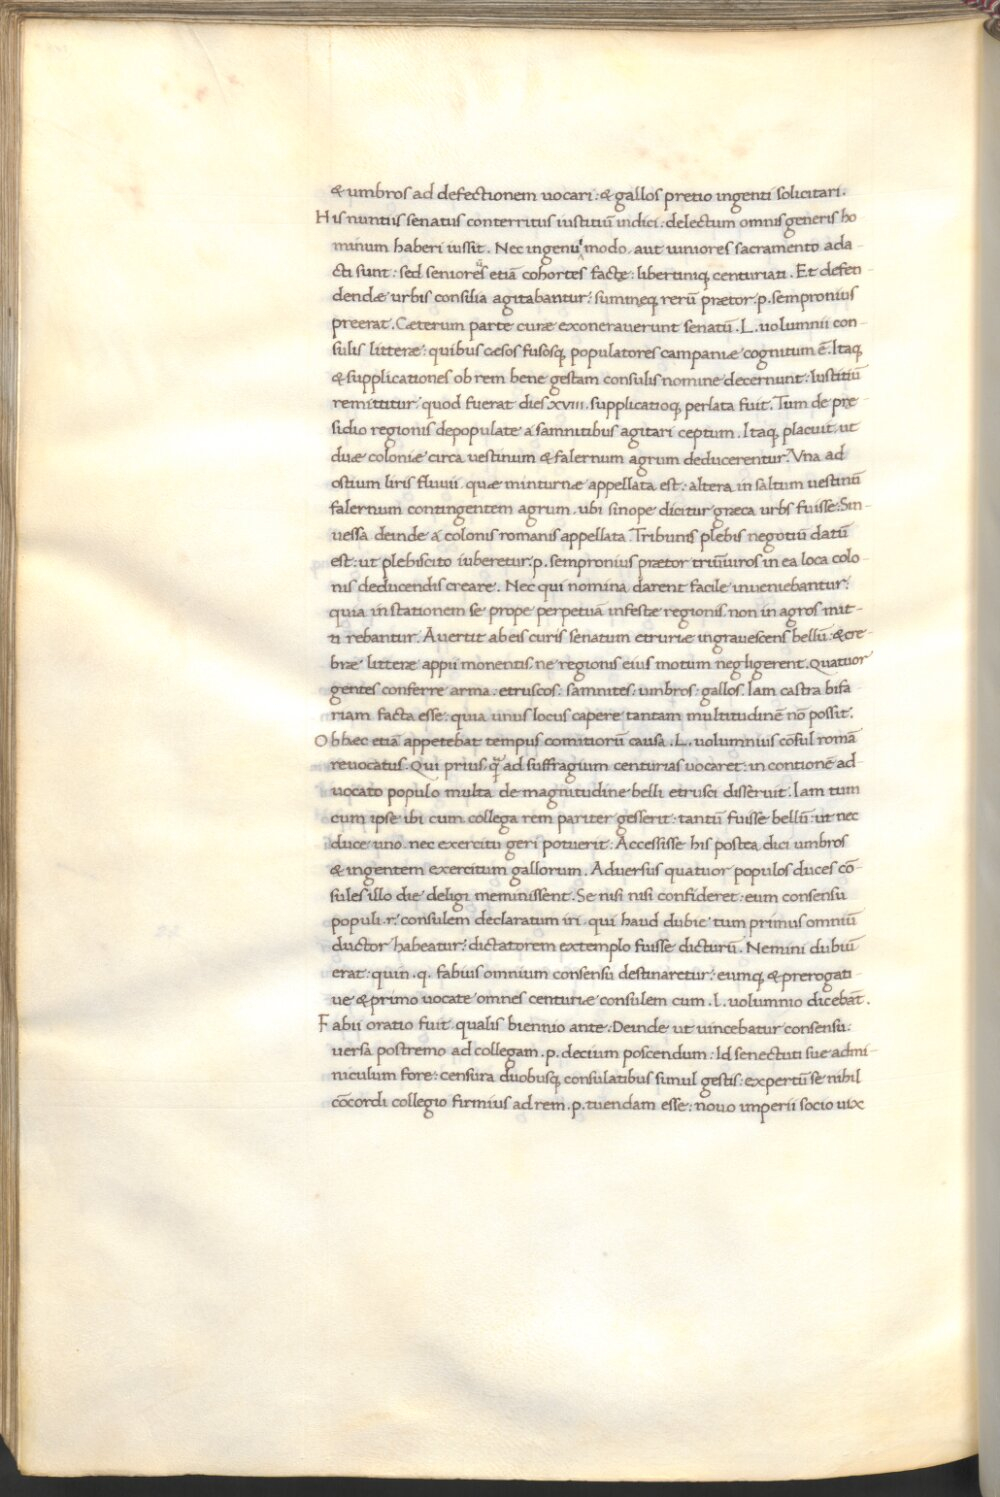 & umbros ad defectionem uocari: & gallos pretio ingenti solicitari.
His nuntiis senatus conterritus iustitiũ indici: delectum omnis generis ho
minum haberi iussit. Nec ingenui modo. aut iuniores sacramento ada-
cti sunt: sed seniorũ etiã cohortes factę: libertiniq; centuriati. Et defen-
dendæ urbis consilia agitabantur: summeq; rerũ prætor. p. sempronius
preerat. Cæterum parte curæ exonerauerunt senatũ. L. uolumnii con-
sulis litteræ: quibus cæsos fusosq; populatores campaniæ cognitum ẽ. Itaq;
& supplicationes ob rem bene gestam consulis nomine decernunt: Iustitiũ
remittitur. quod fuerat dies. xviii. supplicatioq; perlata fuit. Tum de prę-
sidio regionis depopulate a samnitibus agitari ceptum. Itaq; placuit. ut
duæ coloniæ circa uestinum & falernum agrum deducerentur. Vna ad
ostium liris fluuii. quæ minturnæ appellata est: altera in saltum uestinũ
falernum contingentem agrum. ubi sinope dicitur græca urbs fuisse. Sin-
uessa deinde a colonis romanis appellata. Tribunis plebis negotiũ datũ
est: ut plebiscito iuberetur. p. sempronius prætor triũuiros in ea loca colo-
nis deducendis creare. Nec qui nomina darent facile inueniebantur:
quia in stationem se prope perpetuã infestæ regionis. non in agros mit-
ti rebantur. Auertit ab eis curis senatum etruriæ ingrauescens bellũ: & cre-
bræ litteræ appii monentis. ne regionis eius motum negligerent. Quatuor
gentes conferre arma. etruscos: samnites: umbros: gallos. Iam castra bifa-
riam facta esse: quia unus locus capere tantam multitudinẽ nõ possit.
Ob hæc etiã appetebat tempus comitiorũ causa. L. uolumnius cõsul romã
reuocatus. Qui prius q̃ ad suffragium centurias uocaret: in contionẽ ad-
uocato populo multa de magnitudine belli etrusci disseruit. Iam tum
cum ipse ibi cum collega rem pariter gesserit: tantũ fuisse bellũ: ut nec
duce uno. nec exercitu geri potuerit: Accessisse his postea dici umbros
& ingentem exercitum gallorum. Aduersus quatuor populos duces cõ-
sules illo die deligi meminissent. Se nisi nisi confideret: eum consensu
populi. r. consulem declaratum iri. qui haud dubie tum primus omniũ
ductor habeatur: dictatorem extemplo fuisse dicturũ. Nemini dubiũ
erat: quin. q. fabius omnium consensu destinaretur: eumq; & prerogati-
ue & primo uocate omnes centuriæ consulem cum. l. uolumnio dicebãt.
Fabii oratio fuit. qualis biennio ante: Deinde ut uincebatur consensu:
uersa postremo ad collegam. p. decium poscendum: Id senectuti sue admi-
niculum fore: censura duobusq; consulatibus simul gestis: expertũ se nihil
cõcordi collegio firmius ad rem. p. tuendam esse: nouo imperii socio uix